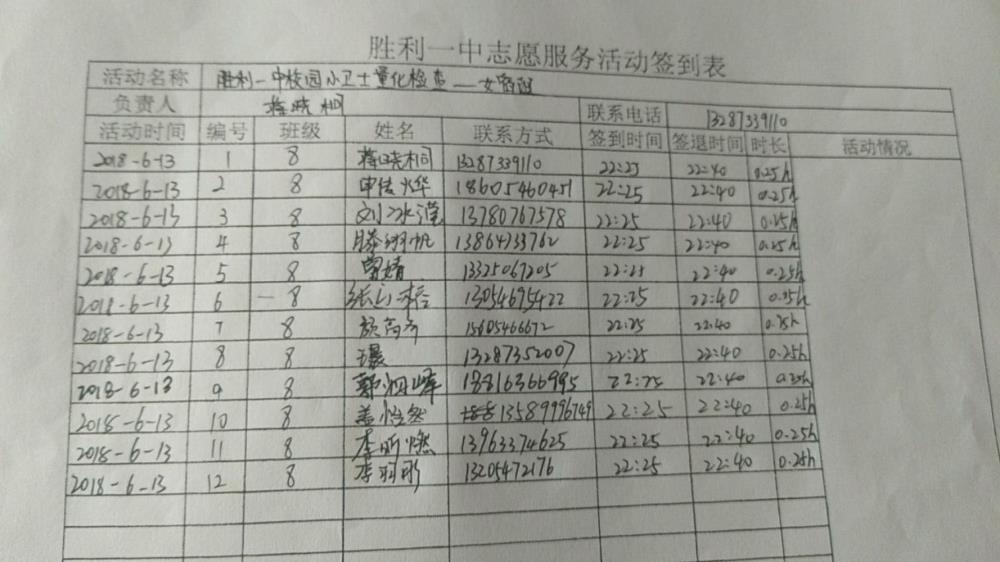 胜利一中志愿服务活动签到表
活动名称 胜利一中校园小卫士量化检查——女宿
负责人 蒋晓桐 联系电话 13287339110
活动时间 编号 班级 姓名 联系方式 签到时间 签退时间 时长 活动情况
2018-6-13 1 8 蒋晓桐 13287339110 22:25 22:40 0.25h
2018-6-13 2 8 申佳烨 18605460451 22:25 22:40 0.25h
2018-6-13 3 8 刘冰滢 13780767578 22:25 22:40 0.25h
2018-6-13 4 8 滕翊帆 13864733762 22:25 22:40 0.25h
2018-6-13 5 8 曾婧 13325067205 22:25 22:40 0.25h
2018-6-13 6 8 13054695422 22:25 22:40 0.25h
2018-6-13 7 8 颜 15605466672 22:25 22:40 0.25h
2018-6-13 8 8 13287352007 22:25 22:40 0.25h
2018-6-13 9 8 郭 18816366995 22:25 22:40 0.25h
2018-6-13 10 8 盖怡然 13589996749 22:25 22:40 0.25h
2018-6-13 11 8 李昕燃 13963374625 22:25 22:40 0.25h
2018-6-13 12 8 李羽彤 13205472176 22:25 22:40 0.25h